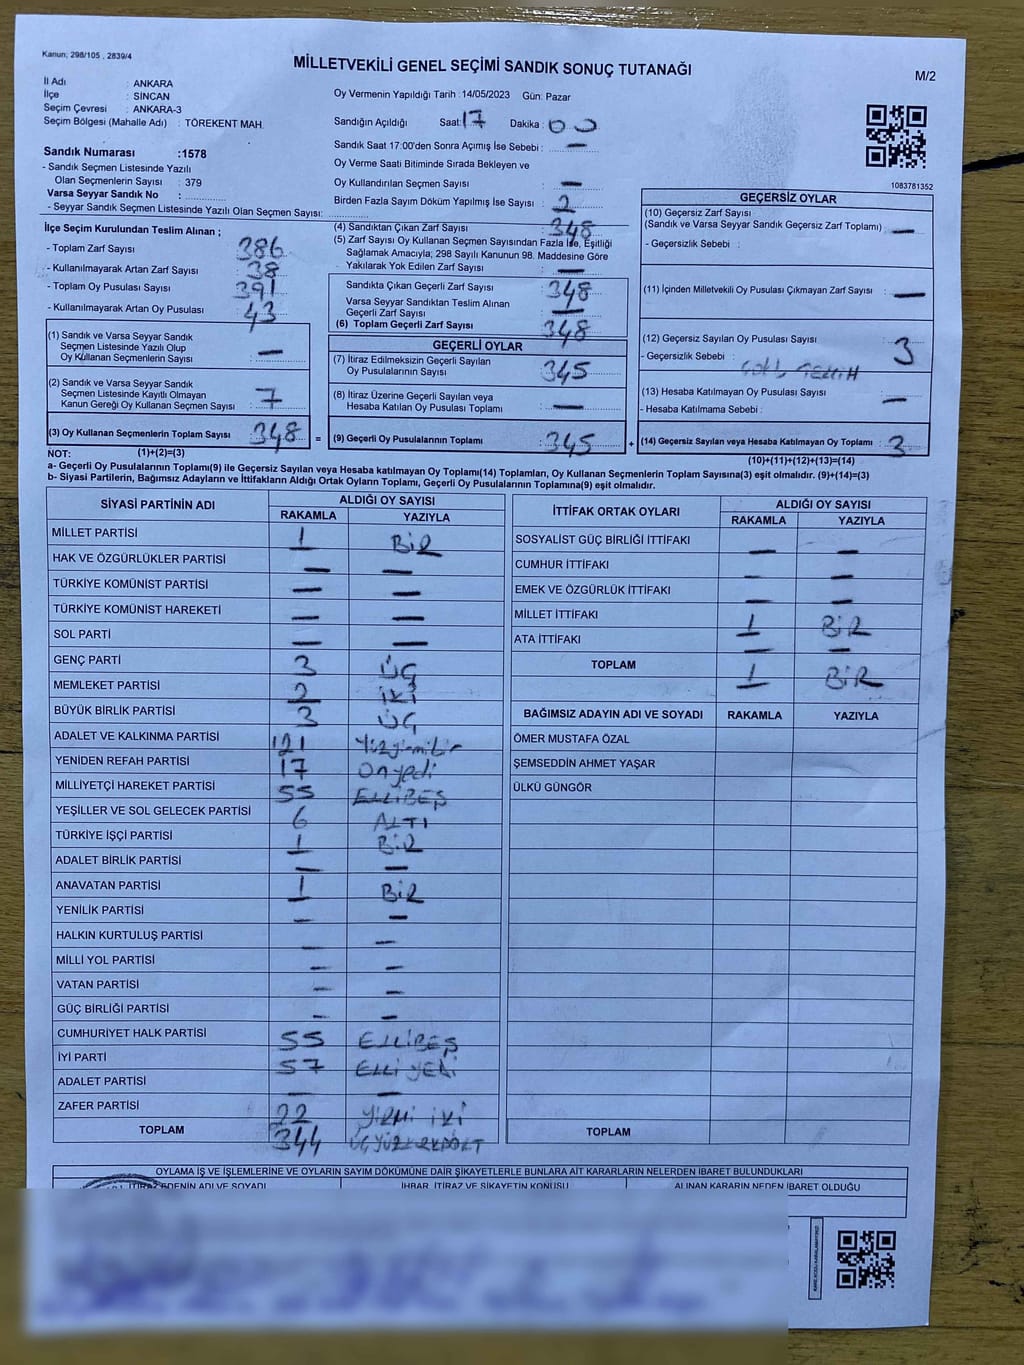 Kanun; 298/105 , 2839/4
MİLLETVEKİLİ GENEL SEÇİMİ SANDIK SONUÇ TUTANAĞI
M/2
İl Adı : ANKARA
İlçe : SİNCAN
Seçim Çevresi : ANKARA-3
Seçim Bölgesi (Mahalle Adı) : TÖREKENT MAH.
Oy Vermenin Yapıldığı Tarih : 14/05/2023 Gün: Pazar
Sandığın Açıldığı Saat: 17 Dakika : 00
Sandık Saat 17:00'den Sonra Açımış İse Sebebi : —
Oy Verme Saati Bitiminde Sırada Bekleyen ve
Oy Kullandırılan Seçmen Sayısı : —
Birden Fazla Sayım Döküm Yapılmış İse Sayısı : 2
Sandık Numarası :1578
- Sandık Seçmen Listesinde Yazılı
Olan Seçmenlerin Sayısı : 379
Varsa Seyyar Sandık No :
- Seyyar Sandık Seçmen Listesinde Yazılı Olan Seçmen Sayısı:
1083781352
İlçe Seçim Kurulundan Teslim Alınan ;
- Toplam Zarf Sayısı : 386
- Kullanılmayarak Artan Zarf Sayısı : 38
- Toplam Oy Pusulası Sayısı : 391
- Kullanılmayarak Artan Oy Pusulası : 43
(1) Sandık ve Varsa Seyyar Sandık
Seçmen Listesinde Yazılı Olup
Oy Kullanan Seçmenlerin Sayısı : —
(2) Sandık ve Varsa Seyyar Sandık
Seçmen Listesinde Kayıtlı Olmayan
Kanun Gereği Oy Kullanan Seçmen Sayısı : 7
(3) Oy Kullanan Seçmenlerin Toplam Sayısı : 348 =
(4) Sandıktan Çıkan Zarf Sayısı : 348
(5) Zarf Sayısı Oy Kullanan Seçmen Sayısından Fazla İse, Eşitliği
Sağlamak Amacıyla; 298 Sayılı Kanunun 98. Maddesine Göre
Yakılarak Yok Edilen Zarf Sayısı : —
Sandıkta Çıkan Geçerli Zarf Sayısı : 348
Varsa Seyyar Sandıktan Teslim Alınan
Geçerli Zarf Sayısı : —
(6) Toplam Geçerli Zarf Sayısı : 348
GEÇERLİ OYLAR
(7) İtiraz Edilmeksizin Geçerli Sayılan
Oy Pusulalarının Sayısı : 345
(8) İtiraz Üzerine Geçerli Sayılan veya
Hesaba Katılan Oy Pusulası Toplamı : —
(9) Geçerli Oy Pusulalarının Toplamı : 345 +
GEÇERSİZ OYLAR
(10) Geçersiz Zarf Sayısı
(Sandık ve Varsa Seyyar Sandık Geçersiz Zarf Toplamı) : —
- Geçersizlik Sebebi :
(11) İçinden Milletvekili Oy Pusulası Çıkmayan Zarf Sayısı : —
(12) Geçersiz Sayılan Oy Pusulası Sayısı : 3
- Geçersizlik Sebebi :
(13) Hesaba Katılmayan Oy Pusulası Sayısı : —
- Hesaba Katılmama Sebebi :
(14) Geçersiz Sayılan veya Hesaba Katılmayan Oy Toplamı : 3
NOT: (1)+(2)=(3)
(10)+(11)+(12)+(13)=(14)
a- Geçerli Oy Pusulalarının Toplamı(9) ile Geçersiz Sayılan veya Hesaba katılmayan Oy Toplamı(14) Toplamları, Oy Kullanan Seçmenlerin Toplam Sayısına(3) eşit olmalıdır. (9)+(14)=(3)
b- Siyasi Partilerin, Bağımsız Adayların ve İttifakların Aldığı Ortak Oyların Toplamı, Geçerli Oy Pusulalarının Toplamına(9) eşit olmalıdır.
SİYASİ PARTİNİN ADI ALDIĞI OY SAYISI
RAKAMLA YAZIYLA
MİLLET PARTİSİ 1 BİR
HAK VE ÖZGÜRLÜKLER PARTİSİ — —
TÜRKİYE KOMÜNİST PARTİSİ — —
TÜRKİYE KOMÜNİST HAREKETİ — —
SOL PARTİ — —
GENÇ PARTİ 3 ÜÇ
MEMLEKET PARTİSİ 2 İKİ
BÜYÜK BİRLİK PARTİSİ 3 ÜÇ
ADALET VE KALKINMA PARTİSİ 121 Yüzyirmibir
YENİDEN REFAH PARTİSİ 17 Onyedi
MİLLİYETÇİ HAREKET PARTİSİ 55 ELLİBEŞ
YEŞİLLER VE SOL GELECEK PARTİSİ 6 ALTI
TÜRKİYE İŞÇİ PARTİSİ 1 BİR
ADALET BİRLİK PARTİSİ — —
ANAVATAN PARTİSİ 1 BİR
YENİLİK PARTİSİ — —
HALKIN KURTULUŞ PARTİSİ — —
MİLLİ YOL PARTİSİ — —
VATAN PARTİSİ — —
GÜÇ BİRLİĞİ PARTİSİ — —
CUMHURİYET HALK PARTİSİ 55 ELLİBEŞ
İYİ PARTİ 57 ELLİ YEDİ
ADALET PARTİSİ — —
ZAFER PARTİSİ 22 YİRMİ İKİ
TOPLAM 344 ÜÇYÜZKIRKDÖRT
İTTİFAK ORTAK OYLARI ALDIĞI OY SAYISI
RAKAMLA YAZIYLA
SOSYALİST GÜÇ BİRLİĞİ İTTİFAKI — —
CUMHUR İTTİFAKI — —
EMEK VE ÖZGÜRLÜK İTTİFAKI — —
MİLLET İTTİFAKI 1 BİR
ATA İTTİFAKI — —
TOPLAM 1 BİR
BAĞIMSIZ ADAYIN ADI VE SOYADI RAKAMLA YAZIYLA
ÖMER MUSTAFA ÖZAL
ŞEMSEDDİN AHMET YAŞAR
ÜLKÜ GÜNGÖR
TOPLAM
OYLAMA İŞ VE İŞLEMLERİNE VE OYLARIN SAYIM DÖKÜMÜNE DAİR ŞİKAYETLERLE BUNLARA AİT KARARLARIN NELERDEN İBARET BULUNDUKLARI
İTİRAZ EDENİN ADI VE SOYADI İHBAR, İTİRAZ VE ŞİKAYETİN KONUSU ALINAN KARARIN NEDEN İBARET OLDUĞU